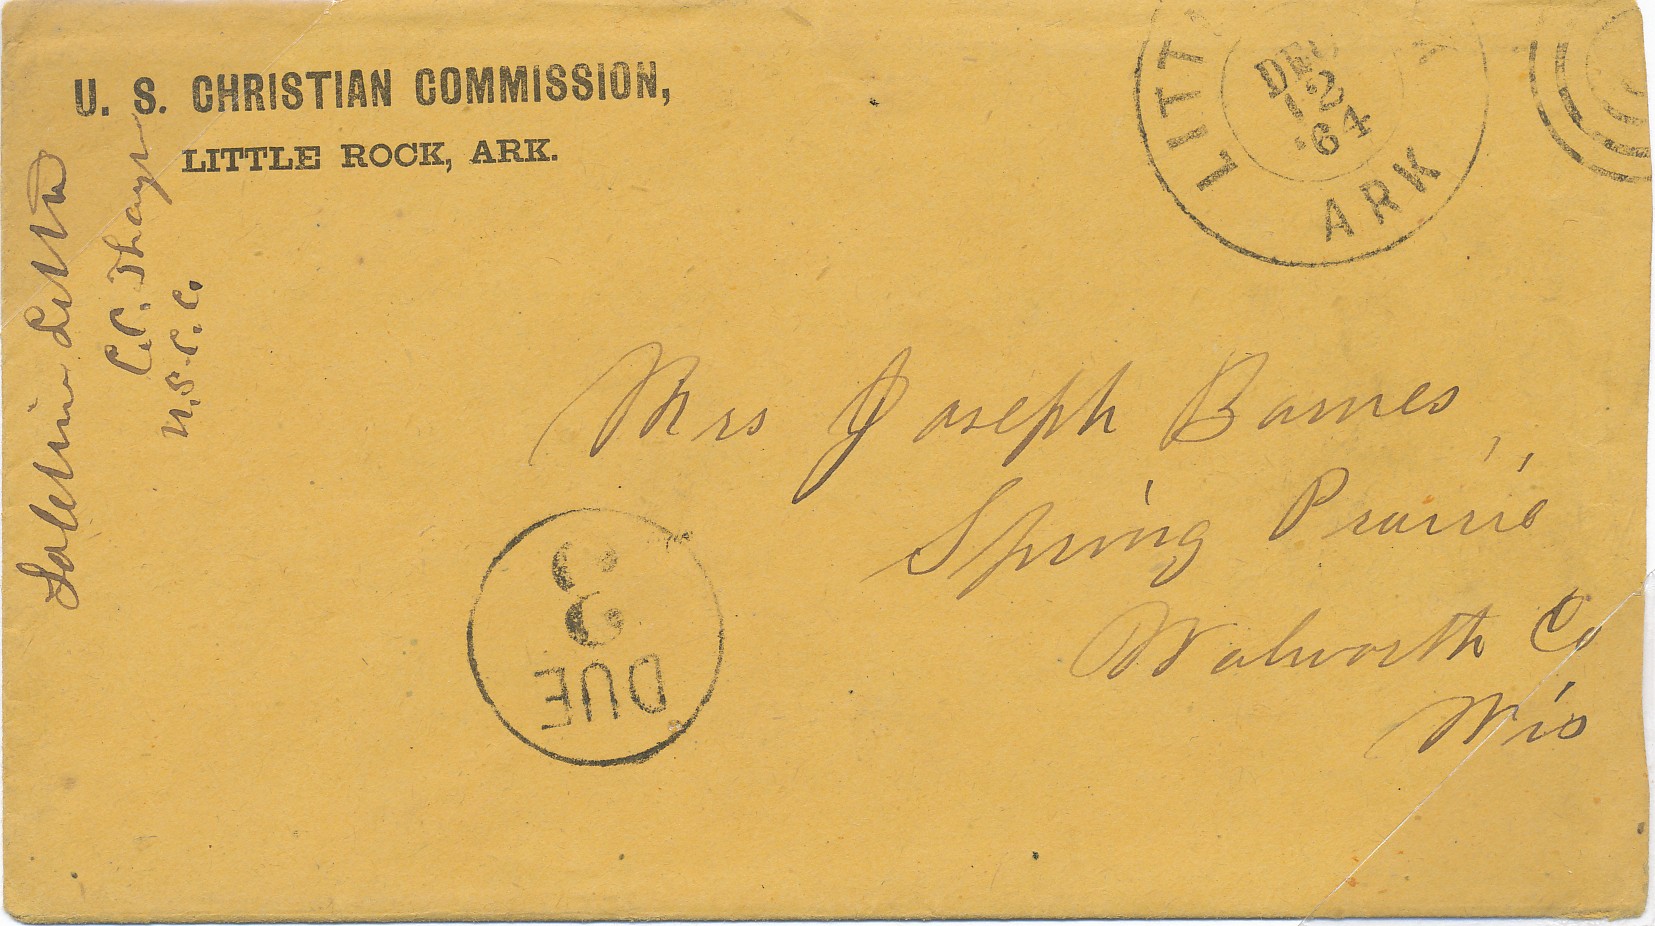 U. S. CHRISTIAN COMMISSION,
LITTLE ROCK, ARK.
LITT
ARK
DEC
12
'64
Soldiers Letter
C. P. Thayer
U. S. C. C.
Mrs Joseph Barnes,
Spring Prairie
Walworth Co
Wis
DUE
3